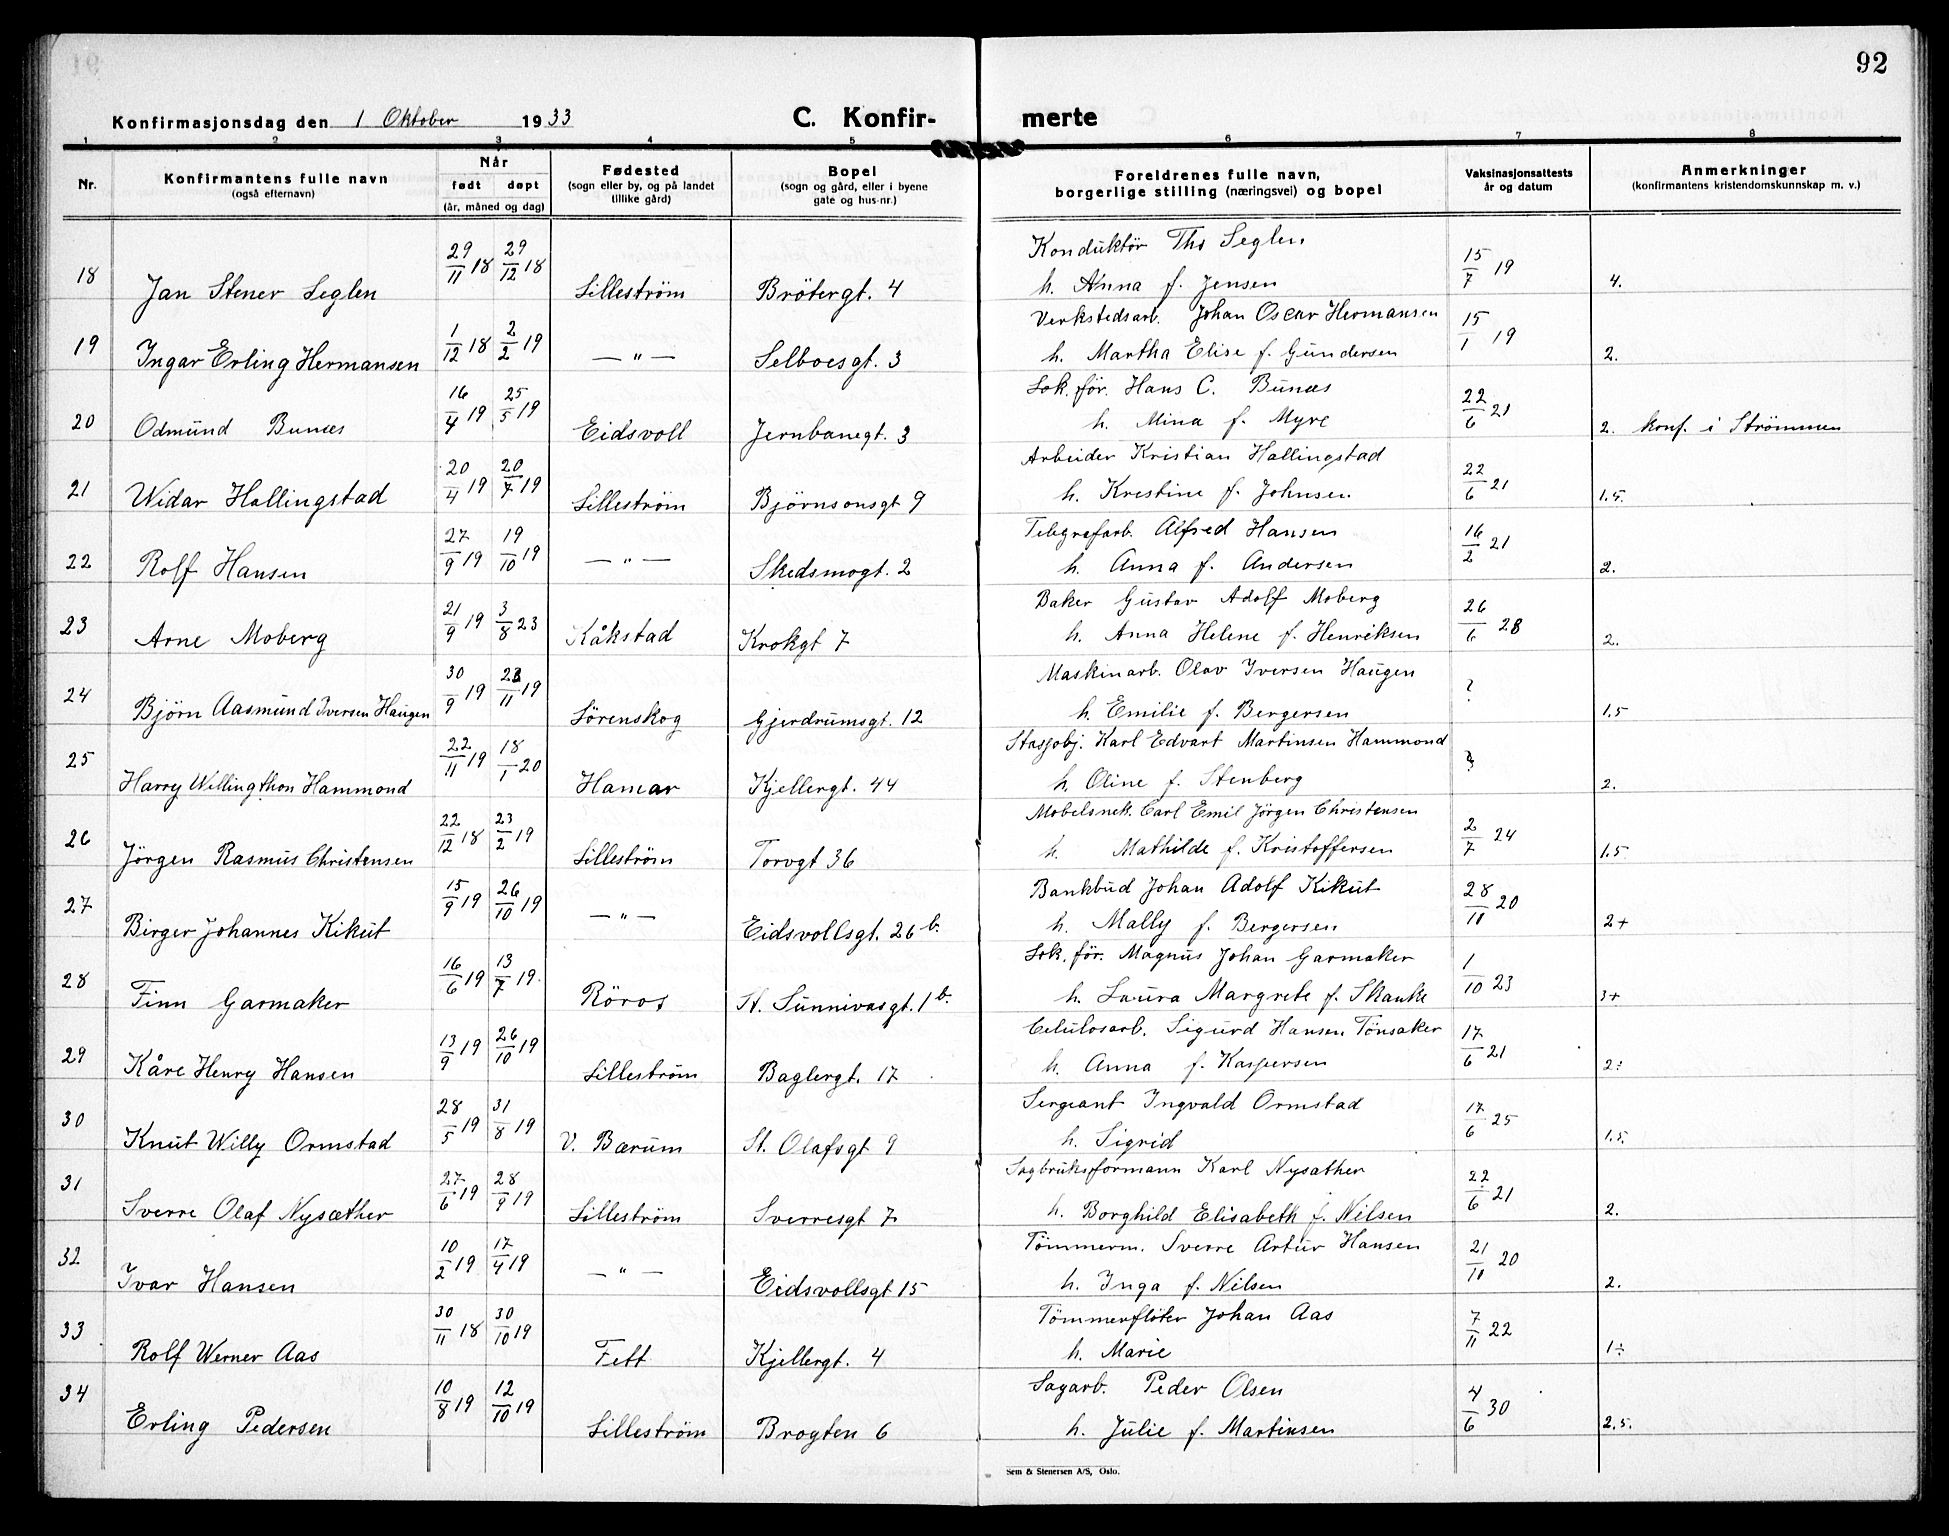 92
Konfirmasjonsdag den 1 Oktober 1933 C. Konfir- merte
1 2 3 4 5 6 7 8
Nr.
Konfirmantens fulle navn
(også efternavn)
Når
født døpt
(år, måned og dag)
Fødested
(sogn eller by, og på landet
tillike gård)
Bopel
(sogn og gård, eller i byene
gate og hus-nr.)
Foreldrenes fulle navn,
borgerlige stilling (næringsvei) og bopel
Vaksinasjonsattests
år og datum
Anmerkninger
(konfirmantens kristendomskunnskap m. v.)
18 Jan Stener Seglen 29/11 18 29/12 18 Lilleström Brötergt. 4 Konduktör Ths Seglen 15/7 19 4.
h. Anna f. Jensen
19 Ingar Erling Hermansen 1/12 18 2/2 19 — " — Selboesgt. 3 Verkstedsarb. Johan Oscar Hermansen 15/1 19 2.
h. Martha Elise f. Gundersen
20 Odmund Bunæs 16/4 19 25/5 19 Eidsvoll Jernbanegt. 3 Lok. för. Hans C. Bunæs 22/6 21 2. konf. i Strömmen
h. Mina f. Myre
21 Widar Hallingstad 20/4 19 20/7 19 Lilleström Björnsonsgt 9 Arbeider Kristian Hallingstad 22/6 21 1.5.
h. Kristine f. Johnsen
22 Rolf Hansen 27/9 19 19/10 19 — " — Skedsmogt. 2 Telegrafarb. Alfred Hansen 16/2 21 2.
h. Anna f. Andersen
23 Arne Moberg 21/9 19 3/8 23 Kåkstad Krokgt 7 Baker Gustav Adolf Moberg 26/6 28 2.
h. Anna Helene f. Henriksen
24 Björn Aasmund Iversen Haugen 30/9 19 23/11 19 Lörenskog Gjerdrumsgt. 12 Maskinarb. Olav Iversen Haugen ? 1.5
h. Emilie f. Bergersen
25 Harry Wellingthon Hammond 22/11 19 18/1 20 Hamar Kjellergt. 44 Stasjobj. Karl Edvart Martinsen Hammond ? 2.
h. Oline f. Stenberg
26 Jörgen Rasmus Christensen 22/12 18 23/2 19 Lilleström Torvgt 36 Mobelsnek. Carl Emil Jörgen Christensen 2/7 24 1.5
h. Mathilde f. Kristoffersen
27 Birger Johannes Kikut 15/9 19 26/10 19 — " — Eidsvollsgt. 26 b. Bankbud Johan Adolf Kikut 28/11 20 2+
h. Mally f. Bergersen
28 Finn Garmaker 16/6 19 13/7 19. Röros St. Sunnivasgt. 1 b. Lok. för. Magnus Johan Garmaker 1/10 23 3+
h. Laura Margrete f. Skanke
29 Kåre Henry Hansen 13/9 19 26/10 19 Lilleström Baglergt. 17 Celulosarb. Sigurd Hansen Tönsaker 17/6 21 2÷
h. Anna f. Kaspersen
30 Knut Willy Ormstad 28/5 19 31/8 19 V. Bærum St. Olafsgt 9 Sergeant Ingvald Ormstad 17/6 25 1.5.
h. Sigrid
31 Sverre Olaf Nysæther 27/6 19 28/9 19 Lilleström Sverresgt 7 Sagbruksformann Karl Nysæther 22/6 21 2.
h. Borghild Elisabeth f. Nilsen
32 Ivar Hansen 10/2 19 17/4 19 — " — Eidsvollsgt 15 Tömmerm. Sverre Artur Hansen 21/10 20 2.
h. Inga f. Nilsen
33 Rolf Werner Aas 30/11 18 30/10 19 Fett Kjellergt. 4 Tömmerflöter Johan Aas 7/11 22 1÷
h. Marie
34 Erling Pedersen 10/8 19 12/10 19 Lilleström Brogten 6 Sagarb. Peder Olsen 4/6 30 2.5.
h. Julie f. Martinsen
Sem & Stenersen A/S, Oslo.